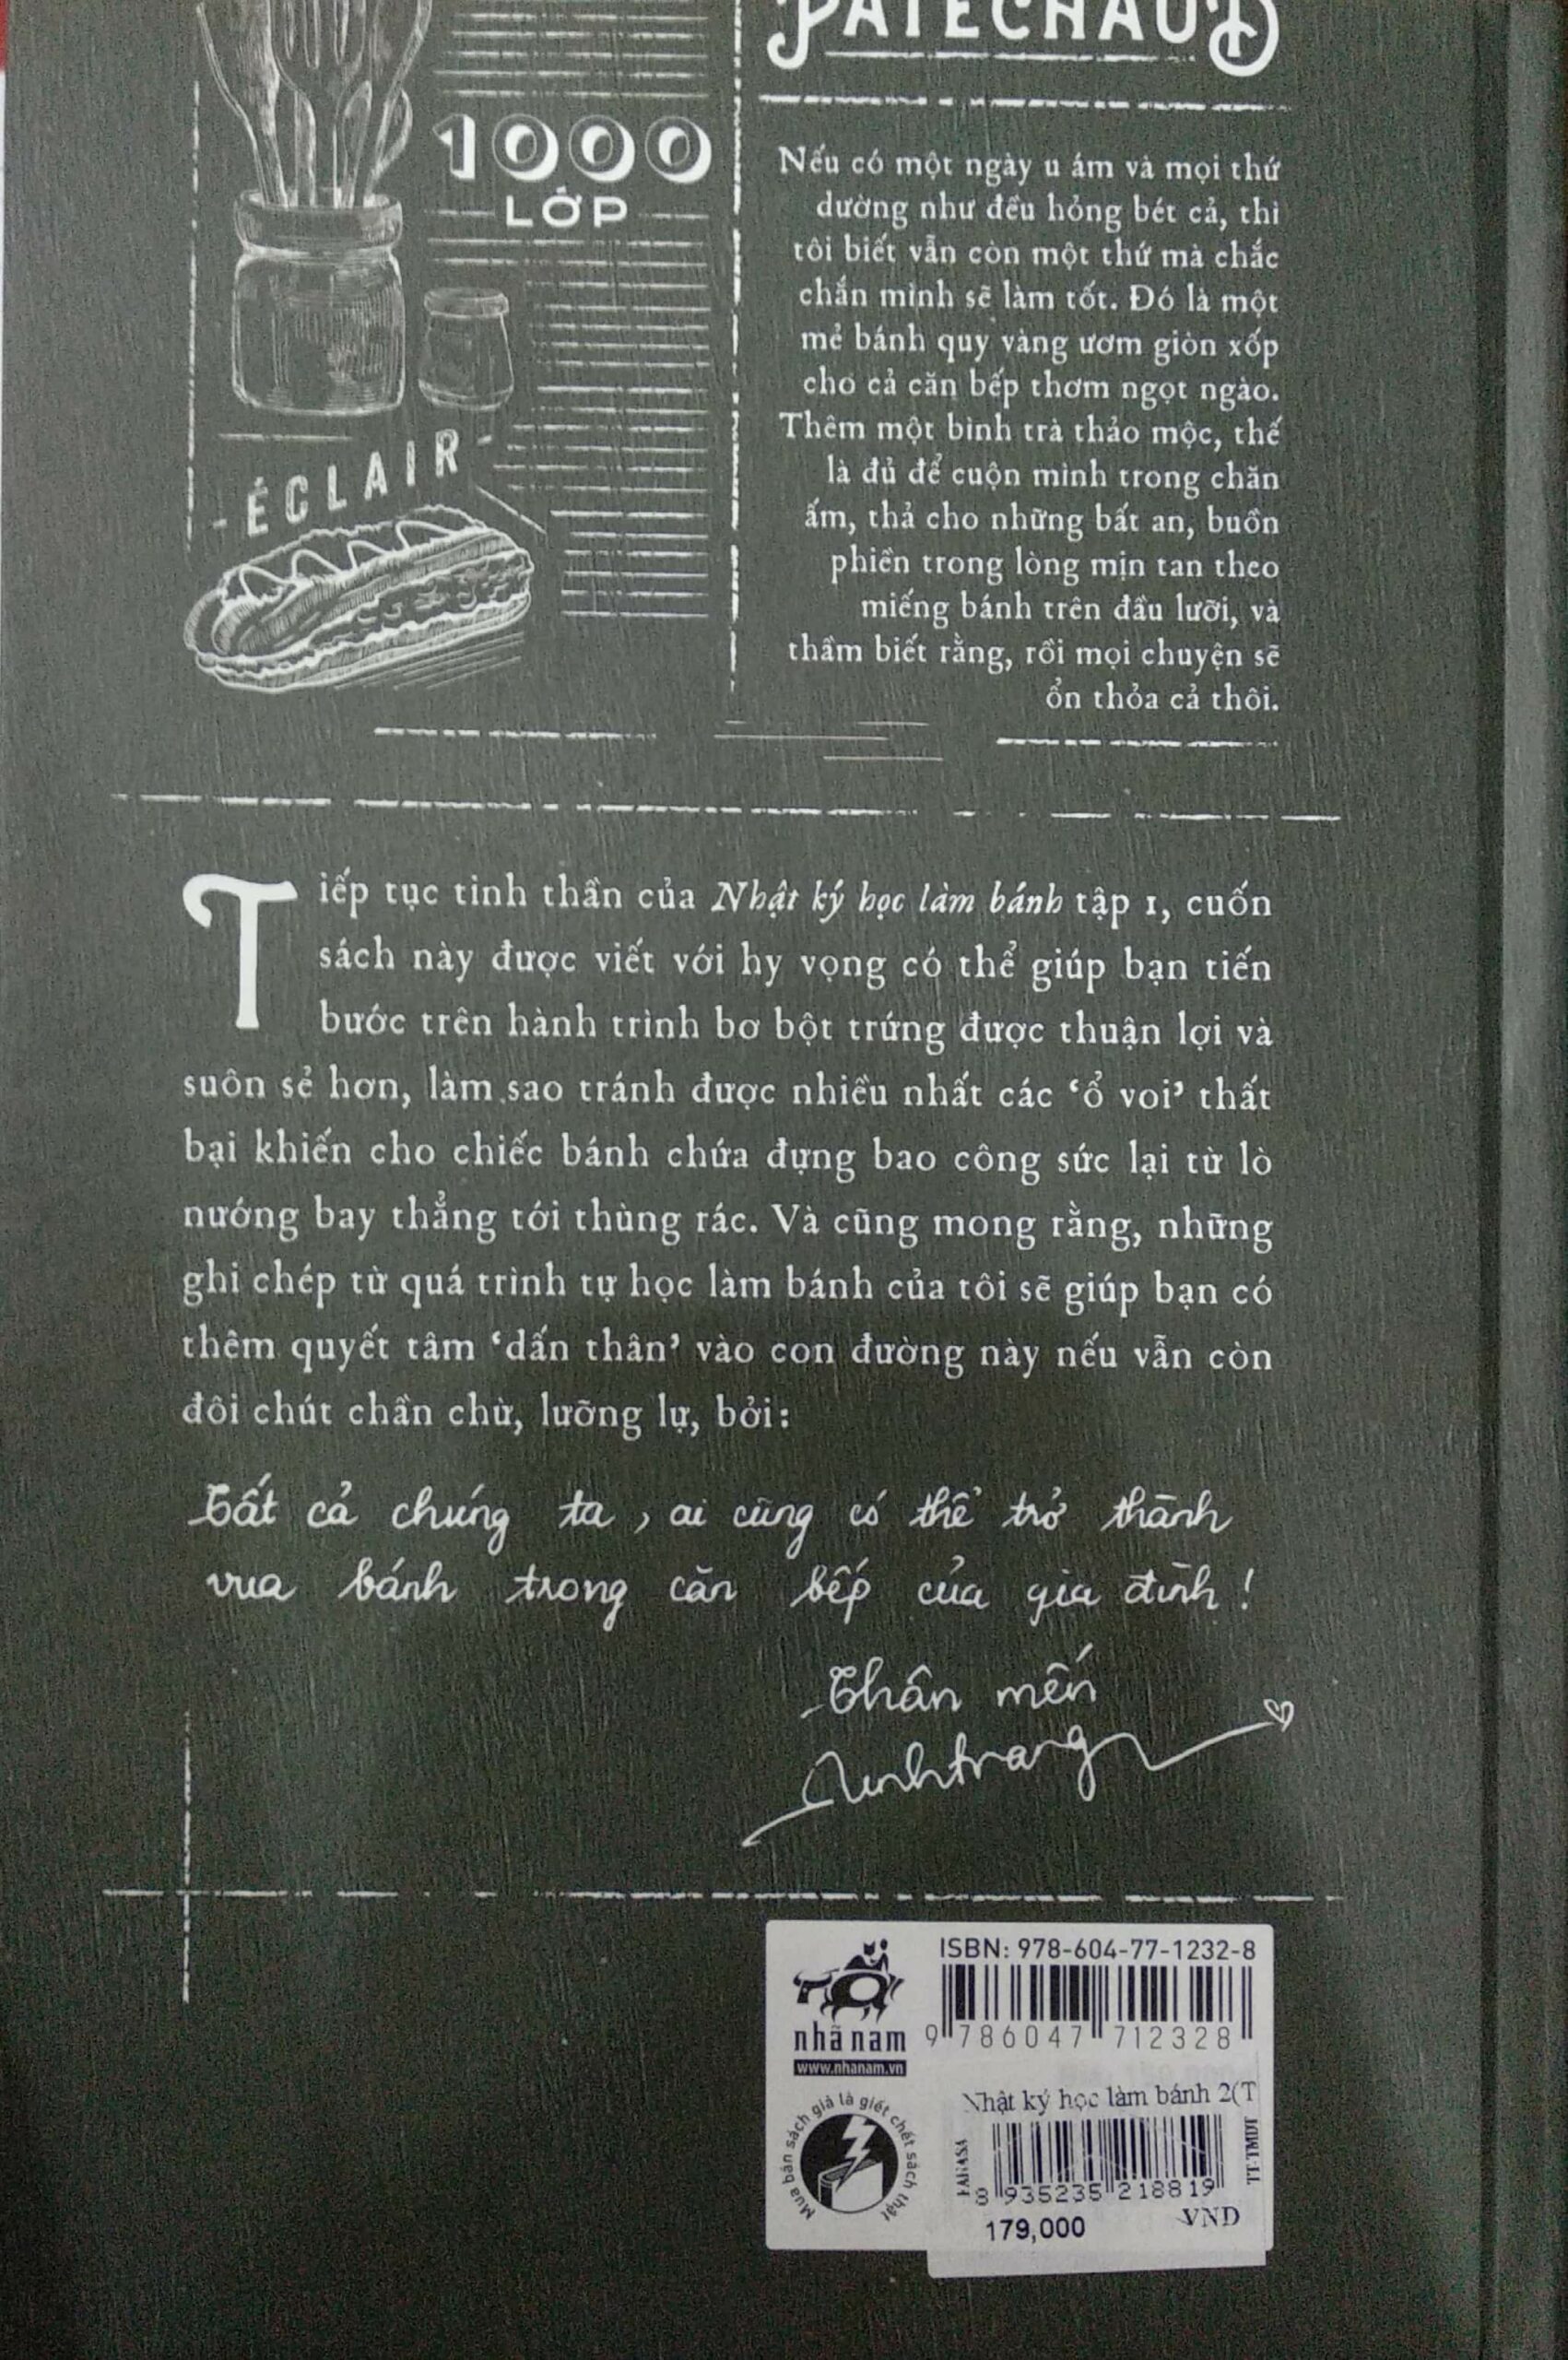 1000
LỚP
ÉCLAIR
PATECHAUD
Nếu có một ngày u ám và mọi thứ
dường như đều hỏng bét cả, thì
tôi biết vẫn còn một thứ mà chắc
chắn mình sẽ làm tốt. Đó là một
mẻ bánh quy vàng ươm giòn xốp
cho cả căn bếp thơm ngọt ngào.
Thêm một bình trà thảo mộc, thế
là đủ để cuộn mình trong chăn
ấm, thả cho những bất an, buồn
phiền trong lòng mịn tan theo
miếng bánh trên đầu lưỡi, và
thầm biết rằng, rồi mọi chuyện sẽ
ổn thỏa cả thôi.
Tiếp tục tinh thần của Nhật ký học làm bánh tập 1, cuốn
sách này được viết với hy vọng có thể giúp bạn tiến
bước trên hành trình bơ bột trứng được thuận lợi và
suôn sẻ hơn, làm sao tránh được nhiều nhất các ‘ổ voi’ thất
bại khiến cho chiếc bánh chứa đựng bao công sức lại từ lò
nướng bay thẳng tới thùng rác. Và cũng mong rằng, những
ghi chép từ quá trình tự học làm bánh của tôi sẽ giúp bạn có
thêm quyết tâm ‘dấn thân’ vào con đường này nếu vẫn còn
đôi chút chần chừ, lưỡng lự, bởi:
Tất cả chúng ta, ai cũng có thể trở thành
vua bánh trong căn bếp của gia đình!
Thân mến
Linhtrang
ISBN: 978-604-77-1232-8
9 786047 712328
nhã nam
www.nhanam.vn
Mua bán sách giả là giết chết sách thật
Nhật ký học làm bánh 2(T
FAHASA
TT-TMDT
8 935235 218819
179,000
VND